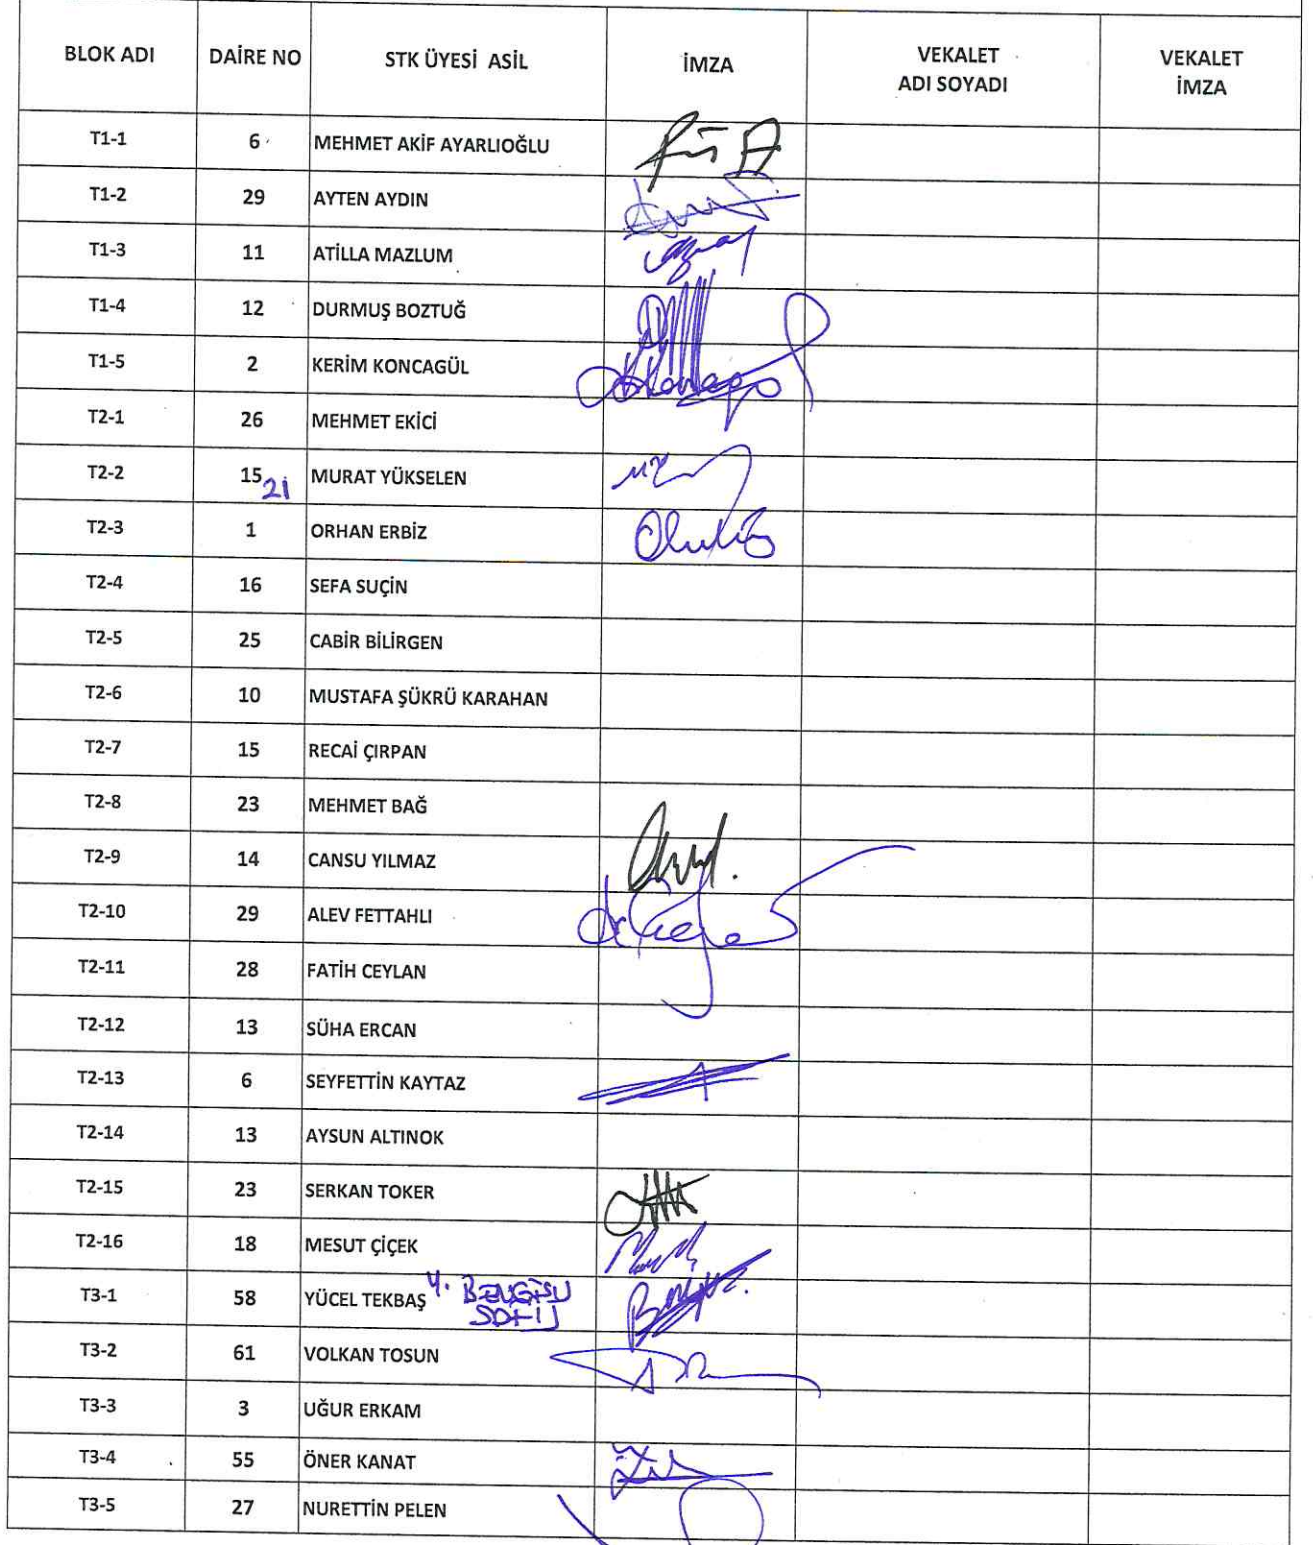 BLOK ADI DAİRE NO STK ÜYESİ ASİL İMZA VEKALET ADI SOYADI VEKALET İMZA
T1-1 6 MEHMET AKİF AYARLIOĞLU
T1-2 29 AYTEN AYDIN
T1-3 11 ATİLLA MAZLUM
T1-4 12 DURMUŞ BOZTUĞ
T1-5 2 KERİM KONCAGÜL
T2-1 26 MEHMET EKİCİ
T2-2 15 21 MURAT YÜKSELEN
T2-3 1 ORHAN ERBİZ
T2-4 16 SEFA SUÇİN
T2-5 25 CABİR BİLİRGEN
T2-6 10 MUSTAFA ŞÜKRÜ KARAHAN
T2-7 15 RECAİ ÇIRPAN
T2-8 23 MEHMET BAĞ
T2-9 14 CANSU YILMAZ
T2-10 29 ALEV FETTAHLI
T2-11 28 FATİH CEYLAN
T2-12 13 SÜHA ERCAN
T2-13 6 SEYFETTİN KAYTAZ
T2-14 13 AYSUN ALTINOK
T2-15 23 SERKAN TOKER
T2-16 18 MESUT ÇİÇEK
T3-1 58 YÜCEL TEKBAŞ
T3-2 61 VOLKAN TOSUN
T3-3 3 UĞUR ERKAM
T3-4 55 ÖNER KANAT
T3-5 27 NURETTİN PELEN